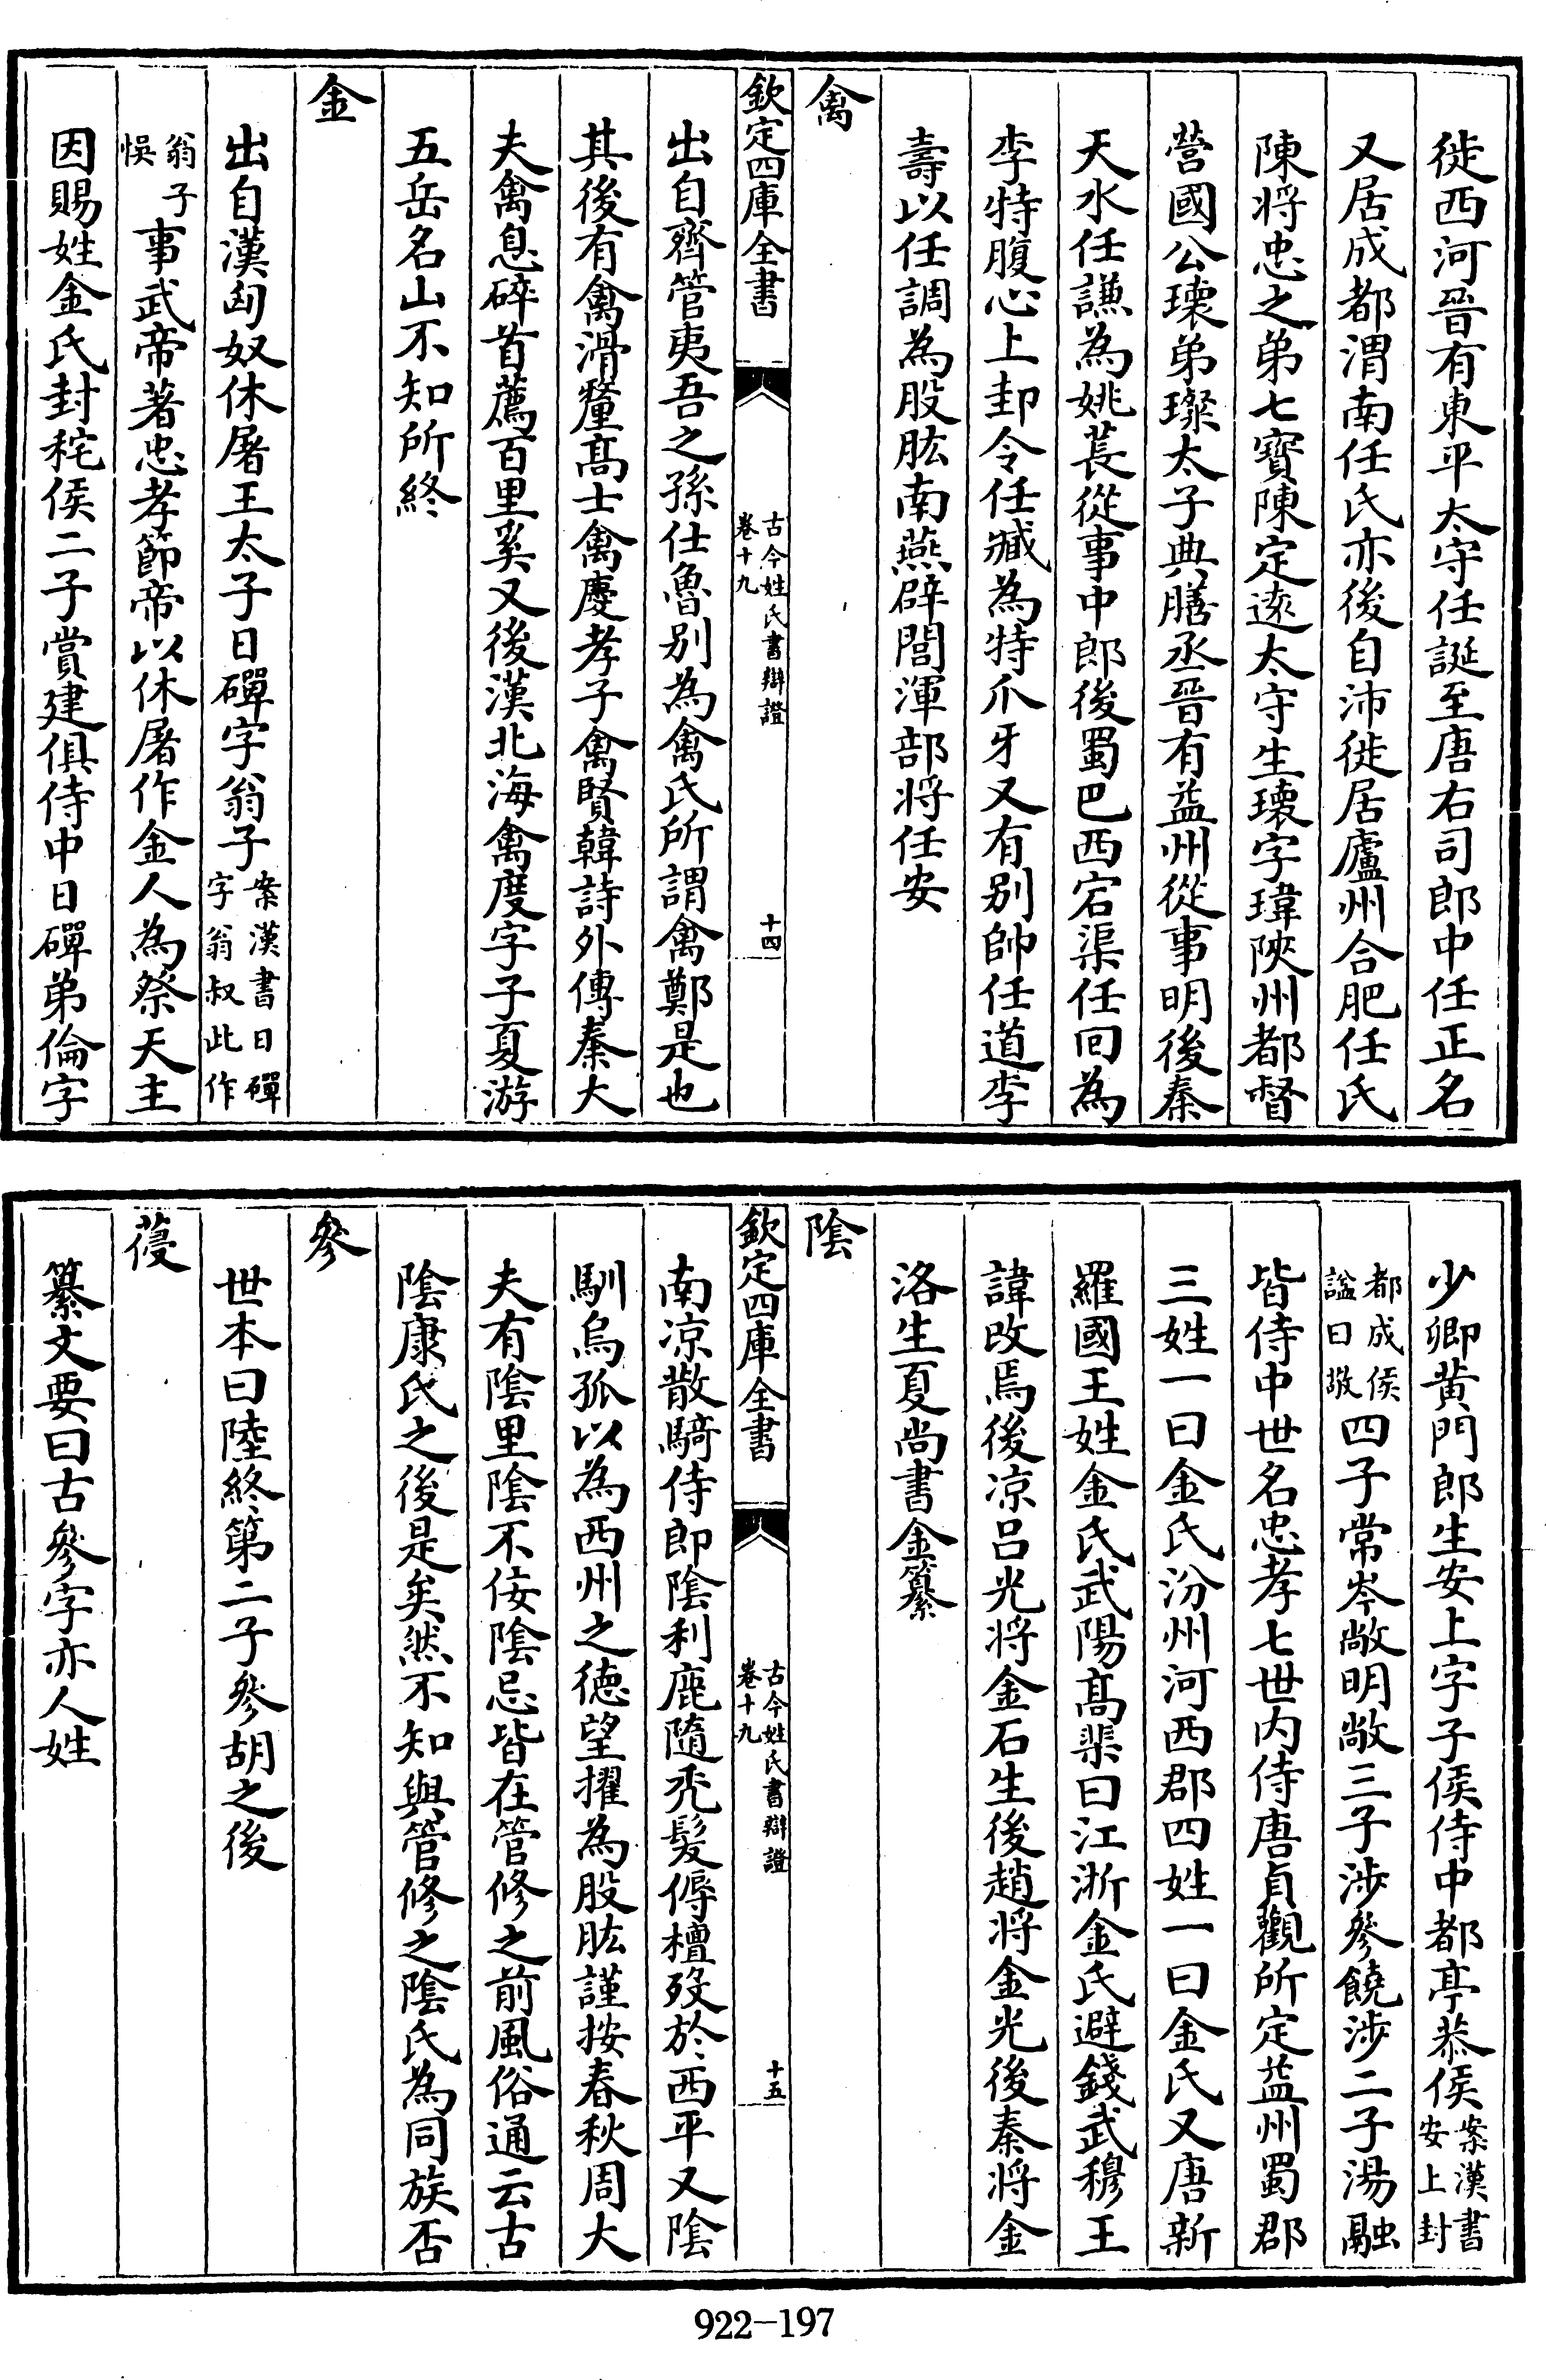 徙西河晉有東平太守任誕至唐右司郎中任正名
又居成都渭南任氏亦後自沛徙居廬州合肥任氏
陳將忠之弟七寶陳定逺太守生瓌字瑋陜州都督
營國公瓌弟璨太子典膳丞晉有益州從事明後秦
天水任謙為姚萇從事中郎後蜀巴西宕渠任回為
李特腹心上邽令任臧為特爪牙又有别帥任道李
壽以任調為股肱南燕辟閭渾部将任安
禽
欽定四庫全書
古今姓氏書辯證
卷十九
十四
出自齊管夷吾之孫仕魯别為禽氏所謂禽鄭是也
其後有禽滑釐髙士禽慶孝子禽賢韓詩外傳秦大
夫禽息碎首薦百里奚又後漢北海禽度字子夏游
五岳名山不知所終
金
出自漢匈奴休屠王太子日磾字翁子案漢書日磾字翁叔此作
翁子悞事武帝著忠孝節帝以休屠作金人為祭天主
因賜姓金氏封秺侯二子賞建俱侍中日磾弟倫字
少卿黄門郎生安上字子侯侍中都亭恭侯案漢書安上封
都成侯諡曰敬四子常岑敞明敞三子涉參饒涉二子湯融
皆侍中世名忠孝七世内侍唐貞觀所定益州蜀郡
三姓一曰金氏汾州河西郡四姓一曰金氏又唐新
羅國王姓金氏武陽髙渠曰江浙金氏避錢武穆王
諱改焉後凉吕光将金石生後趙將金光後秦将金
洛生夏尚書金纂
隂
欽定四庫全書
古今姓氏書辯證
卷十九
十五
南凉散騎侍郎隂利鹿隨秃髮傉檀歿於西平又隂
馴烏孤以為西州之徳望擢為股肱謹按春秋周大
夫有隂里隂不佞隂忌皆在管修之前風俗通云古
隂康氏之後是矣然不知與管修之隂氏為同族否
參
世本曰陸終第二子參胡之後
葠
纂文要曰古參字亦人姓
922-197